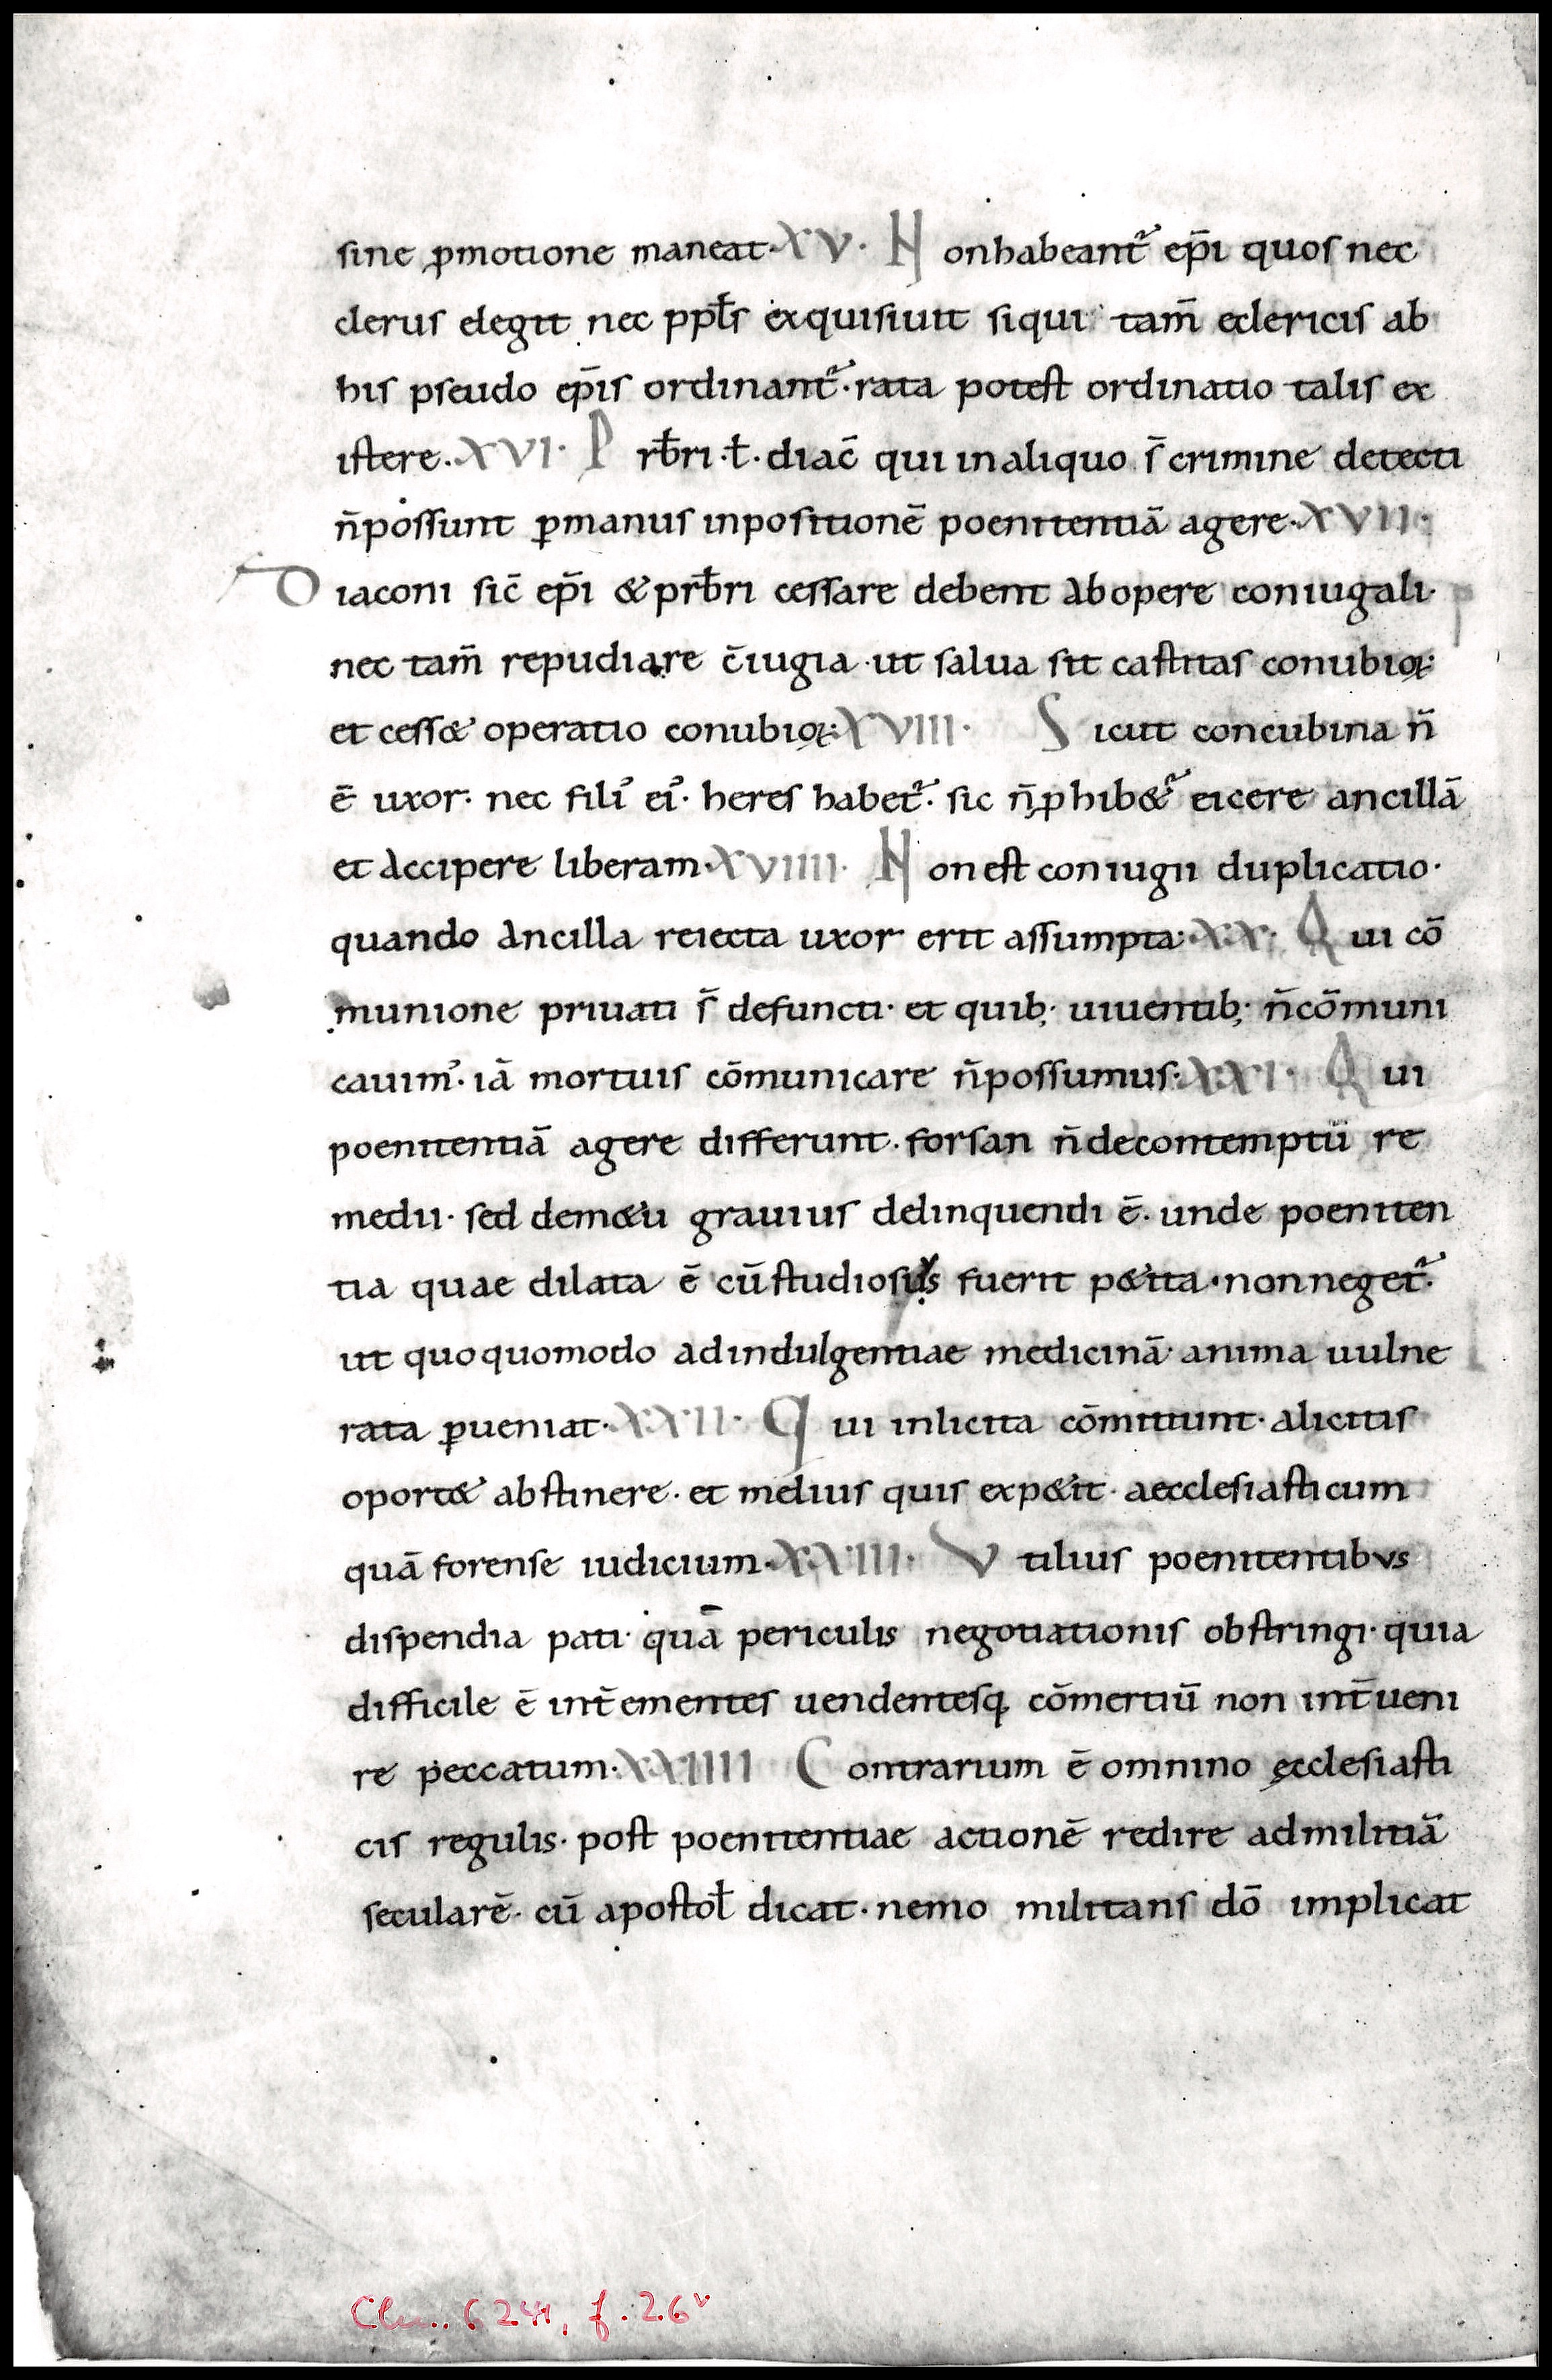 sine ꝓmotione maneat. XV. Non habeant᷑ ep̄i quos nec
clerus elegit nec ppłs exquisiuit siqui tam̄ eclericis ab
his pseudo ep̄is ordinant᷑. rata potest ordinatio talis ex
istere. XVI. Prb̄ri .ł. diac̄ qui in aliquo s̄ crimine detecti
n̄ possunt ꝑ manus inpositionē poenitentiā agere. XVII.
Diaconi sic̄ ep̄i & prb̄ri cessare debent ab opere coniugali.
nec tam̄ repudiare c̄iugia. ut salua sit castitas conubioꝝ.
et cess& operatio conubioꝝ. XVIII. Sicut concubina n̄
ē uxor. nec fili᾽ ei᾽. heres habet᷑. sic n̄ ꝓhib&᷑ eicere ancillā
et accipere liberam. XVIIII. Non est coniugii duplicatio.
quando ancilla reiecta uxor erit assumpta. XX. Qui cō
munione priuati s̄ defuncti. et quib; uiuentib; n̄ cōmuni
cauim᾽. iā mortuis cōmunicare n̄ possumus. XXI. Qui
poenitentiā agere differunt. forsan n̄ de contemptū re
medii. sed de m&u grauius delinquendi ē. unde poeniten
tia quae dilata ē cū studiosius fuerit p&ita. non neget᷑.
ut quoquomodo ad indulgentiae medicinā anima uulne
rata ꝑueniat. XXII. Qui inlicita cōmittunt. alicitis
oport& abstinere. et melius quis exp&it aecclesiasticum
quā forense iudicium. XXIII. Vtilius poenitentibvs
dispendia pati. quā periculis negotiationis obstringi. quia
difficile ē int̄ ementes uendentesq; cōmertiū non int̄ueni
re peccatum. XXIIII Contrarium ē omnino ęcclesiasti
cis regulis. post poenitentiae actionē redire ad militiā
secularē. cū apostoł dicat. nemo militans dō implicat
Clm. 6241, f. 26v